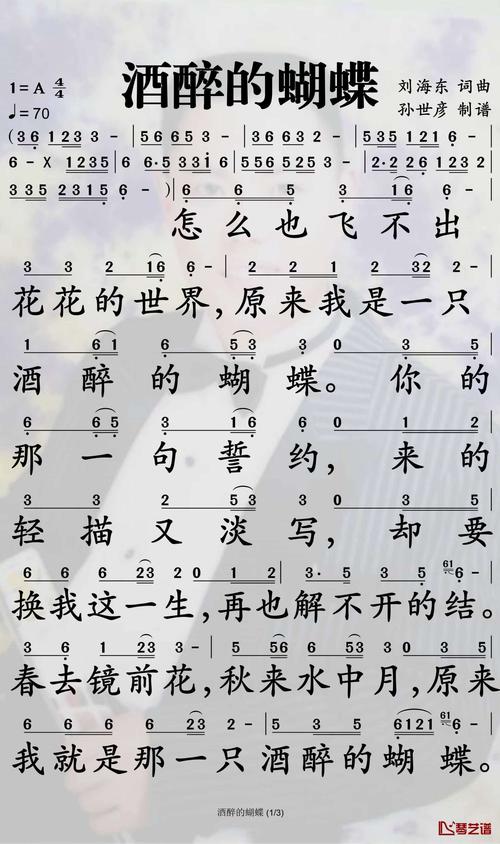 酒醉的蝴蝶
1=A 4/4
刘海东 词曲
♩=70
孙世彦 制谱
(36 1233 - | 56653 - | 36632 - | 5351216 |
6 - X 1235 | 6 6·5 33i6 | 556 5253 | 2·2 26 1232 |
335 2315 | 6 - )| 6 6 5 3 16 |
怎么也飞不出
3 3 2 16 6 - | 2 2 1 2 32 2 |
花花的世界,原来我是一只
1 61 6 53 3 0 3 5 |
酒醉的蝴蝶。你的
6 65 3 16 6 0 1 2 |
那一句誓约,来的
3 3 2 53 3 0 3 5 |
轻描又淡写,却要
6 6 6 23 2 0 1 2 | 3· 5 3 5 61 6 - |
换我这一生,再也解不开的结。
3 6 1 23 3 - | 5 56 6 53 3 3 5 |
春去镜前花,秋来水中月,原来
6 6 6 6 23 2 - | 5 3 5 6121 61 6 - |
我就是那一只酒醉的蝴蝶。
酒醉的蝴蝶 (1/3)
琴艺谱